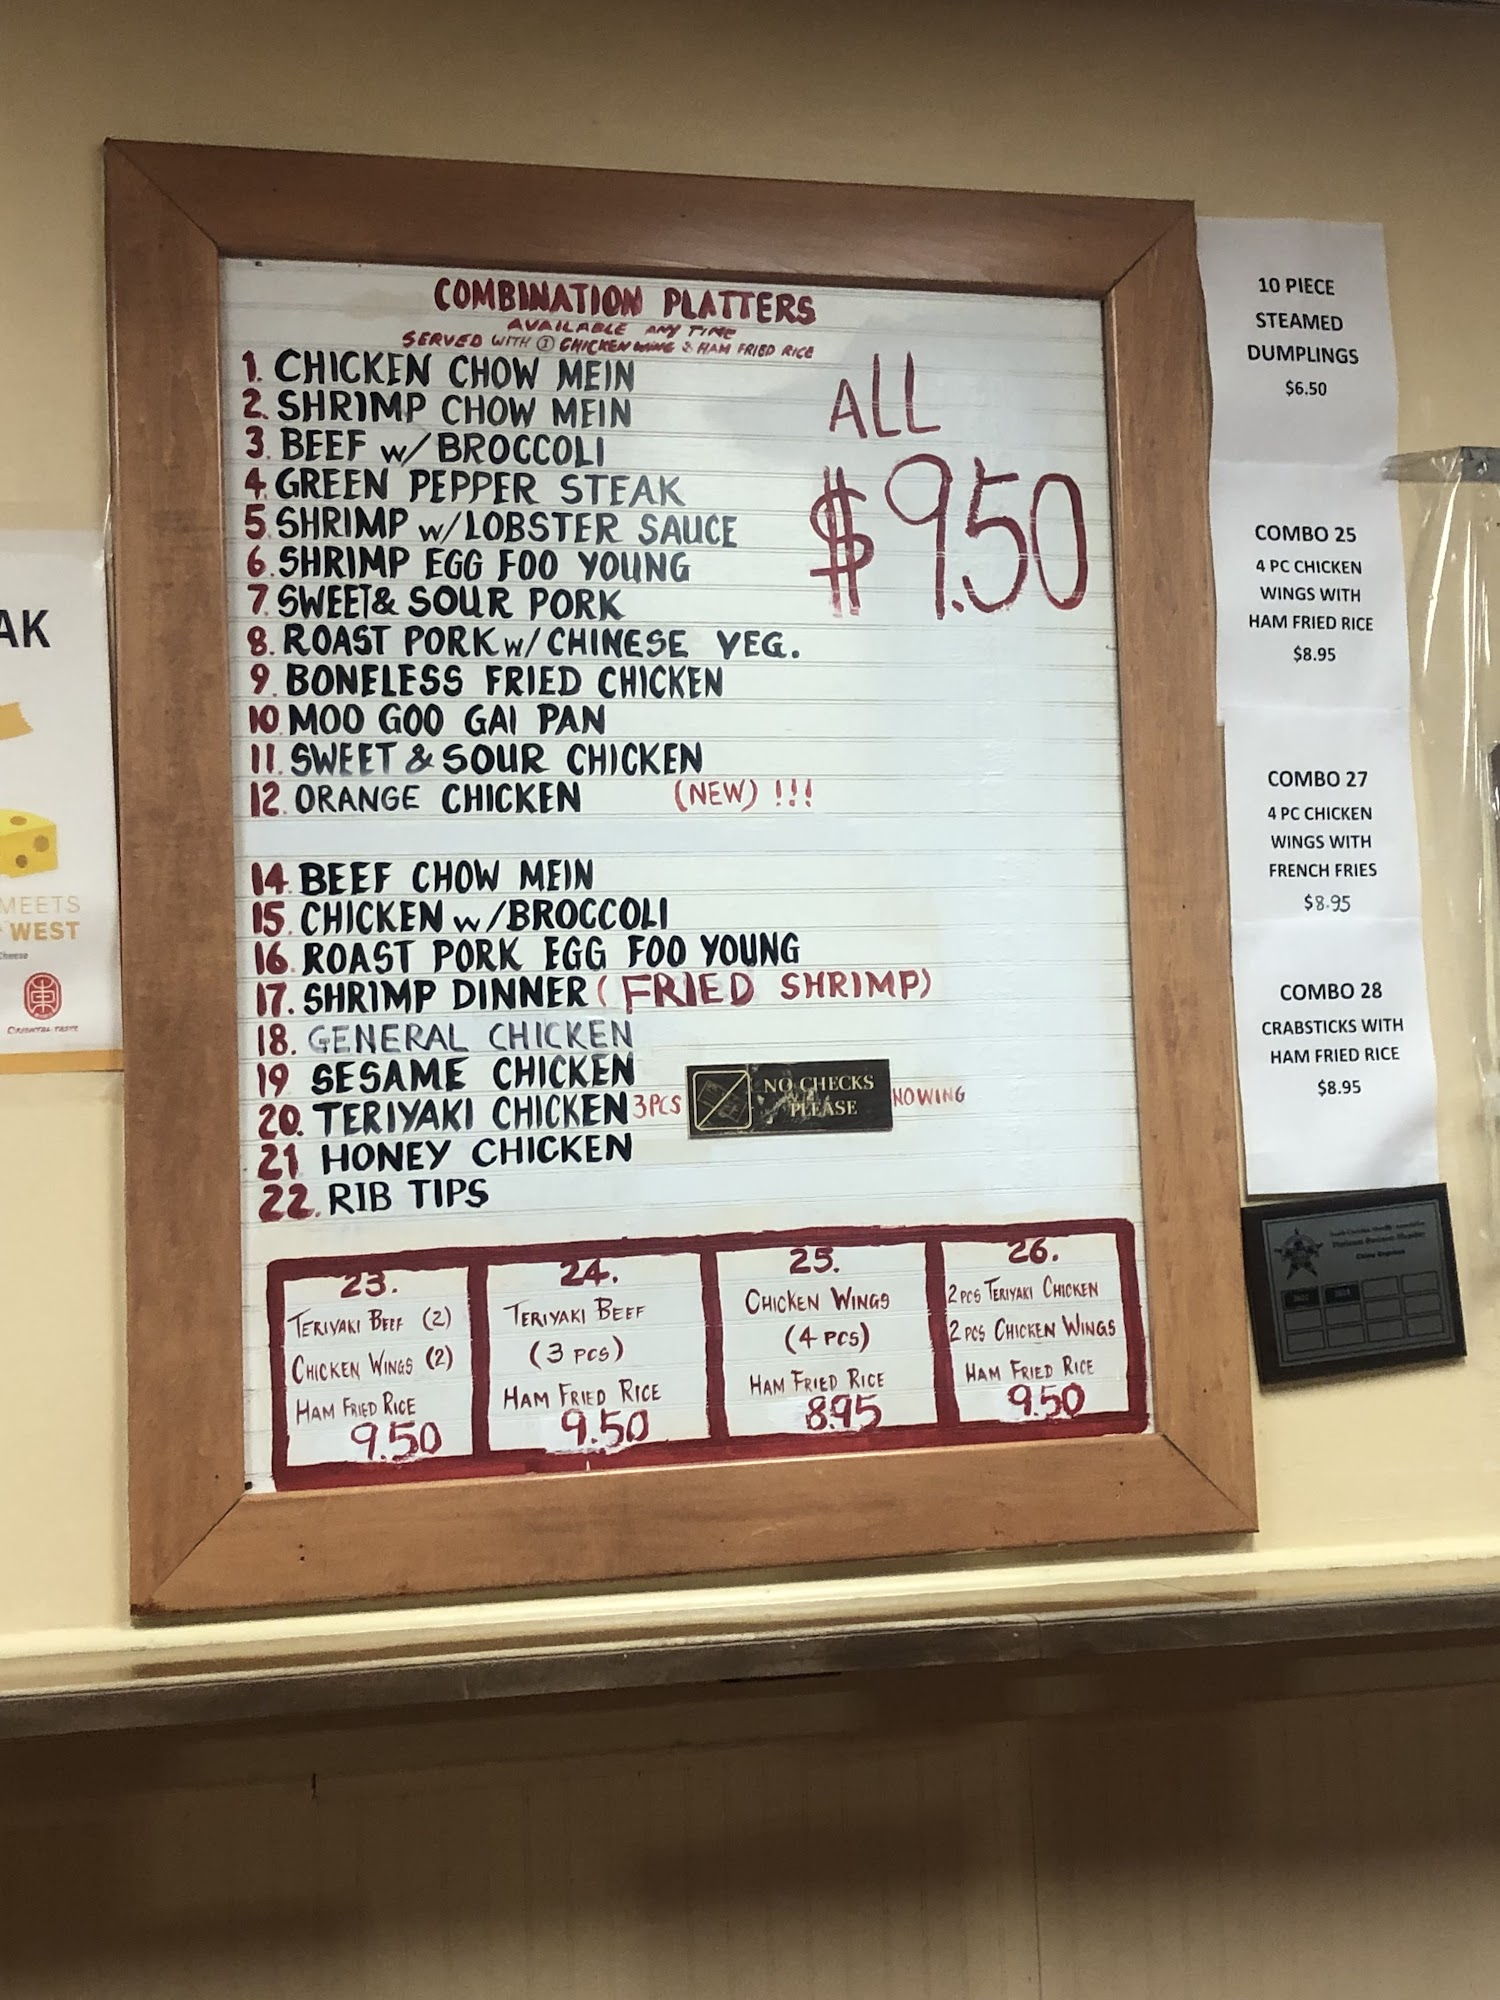 COMBINATION PLATTERS
AVAILABLE ANY TIME
SERVED WITH ① CHICKEN WING & HAM FRIED RICE
ALL
$9.50
1. CHICKEN CHOW MEIN
2. SHRIMP CHOW MEIN
3. BEEF w/ BROCCOLI
4. GREEN PEPPER STEAK
5. SHRIMP w/LOBSTER SAUCE
6. SHRIMP EGG FOO YOUNG
7. SWEET & SOUR PORK
8. ROAST PORK w/ CHINESE VEG.
9. BONELESS FRIED CHICKEN
10. MOO GOO GAI PAN
11. SWEET & SOUR CHICKEN
12. ORANGE CHICKEN (NEW) !!!
14. BEEF CHOW MEIN
15. CHICKEN w/BROCCOLI
16. ROAST PORK EGG FOO YOUNG
17. SHRIMP DINNER (FRIED SHRIMP)
18. GENERAL CHICKEN
19 SESAME CHICKEN
20. TERIYAKI CHICKEN 3PCS NO WING
21 HONEY CHICKEN
22. RIB TIPS
NO CHECKS
PLEASE
23.
TERIYAKI BEEF (2)
CHICKEN WINGS (2)
HAM FRIED RICE
9.50
24.
TERIYAKI BEEF
(3 PCS)
HAM FRIED RICE
9.50
25.
CHICKEN WINGS
(4 PCS)
HAM FRIED RICE
8.95
26.
2 PCS TERIYAKI CHICKEN
2 PCS CHICKEN WINGS
HAM FRIED RICE
9.50
10 PIECE
STEAMED
DUMPLINGS
$6.50
COMBO 25
4 PC CHICKEN
WINGS WITH
HAM FRIED RICE
$8.95
COMBO 27
4 PC CHICKEN
WINGS WITH
FRENCH FRIES
$8.95
COMBO 28
CRABSTICKS WITH
HAM FRIED RICE
$8.95
AK
MEETS
WEST
Cheese
ORIENTAL TASTE